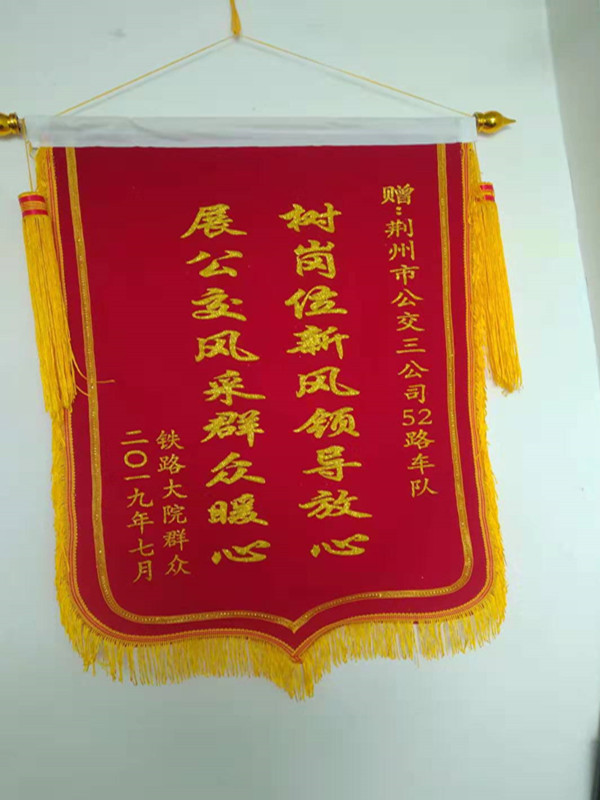 赠：荆州市公交三公司52路车队
树岗位新风领导放心
展公交风采群众暖心
铁路大院群众
二〇一九年七月